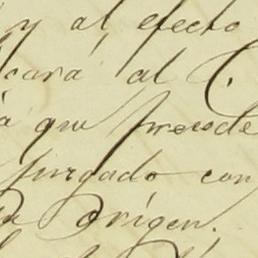 y al efecto
cará al C.
a que procede
Juzgado con
su origen.